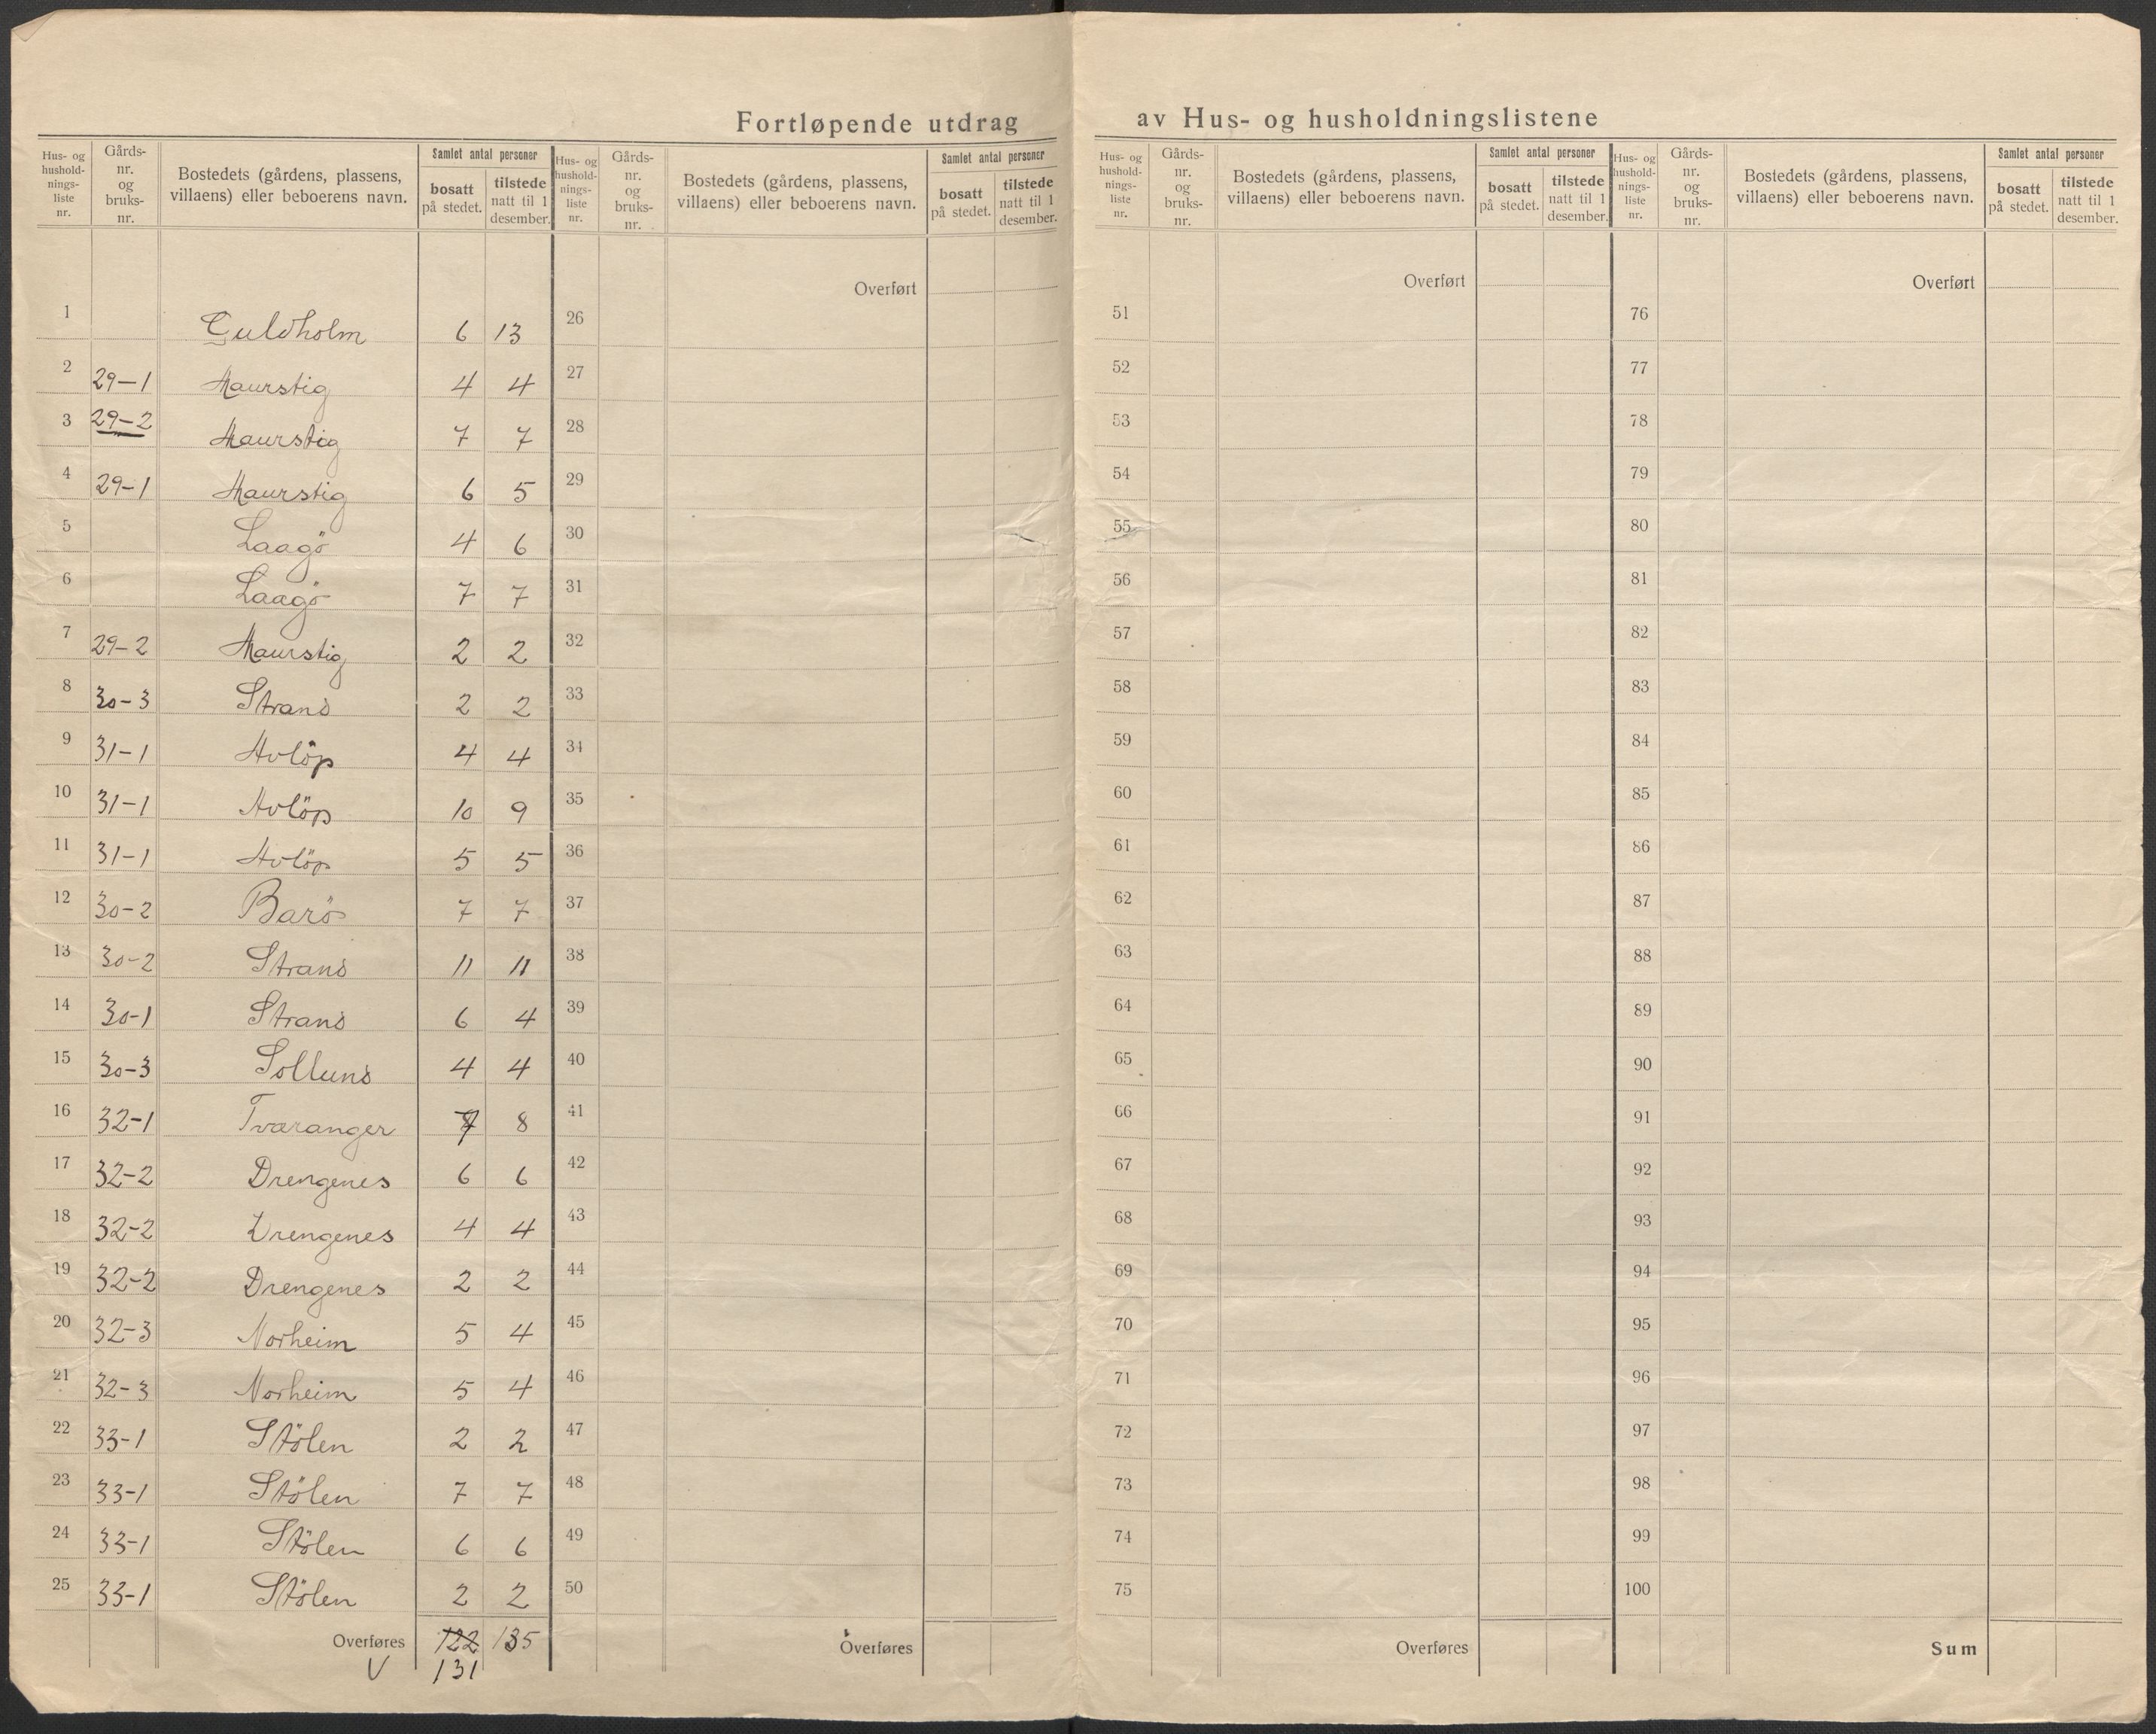 Fortløpende utdrag av Hus- og husholdningslistene
Hus- og hushold-nings-liste nr. Gårds-nr. og bruks-nr. Bostedets (gårdens, plassens, villaens) eller beboerens navn. Samlet antal personer bosatt på stedet. tilstede natt til 1 desember.
1 Guldholm 6 13
2 29-1 Maurstig 4 4
3 29-2 Maurstig 7 7
4 29-1 Maurstig 6 5
5 Laagö 4 6
6 Laagö 7 7
7 29-2 Maurstig 2 2
8 30-3 Strand 2 2
9 31-1 Avlöp 4 4
10 31-1 Avlöp 10 9
11 31-1 Avlöp 5 5
12 30-2 Barö 7 7
13 30-2 Strand 11 11
14 30-1 Strand 6 4
15 30-3 Sollund 4 4
16 32-1 Tværanger 7 8
17 32-2 Drengenes 6 6
18 32-2 Drengenes 4 4
19 32-2 Drengenes 2 2
20 32-3 Norheim 5 4
21 32-3 Norheim 5 4
22 33-1 Stölen 2 2
23 33-1 Stölen 7 7
24 33-1 Stölen 6 6
25 33-1 Stölen 2 2
Overføres 122 135
V 131
Hus- og hushold-nings-liste nr. Gårds-nr. og bruks-nr. Bostedets (gårdens, plassens, villaens) eller beboerens navn. Samlet antal personer bosatt på stedet. tilstede natt til 1 desember.
Overført
26
27
28
29
30
31
32
33
34
35
36
37
38
39
40
41
42
43
44
45
46
47
48
49
50
Overføres
Hus- og hushold-nings-liste nr. Gårds-nr. og bruks-nr. Bostedets (gårdens, plassens, villaens) eller beboerens navn. Samlet antal personer bosatt på stedet. tilstede natt til 1 desember.
Overført
51
52
53
54
55
56
57
58
59
60
61
62
63
64
65
66
67
68
69
70
71
72
73
74
75
Overføres
Hus- og hushold-nings-liste nr. Gårds-nr. og bruks-nr. Bostedets (gårdens, plassens, villaens) eller beboerens navn. Samlet antal personer bosatt på stedet. tilstede natt til 1 desember.
Overført
76
77
78
79
80
81
82
83
84
85
86
87
88
89
90
91
92
93
94
95
96
97
98
99
100
Sum